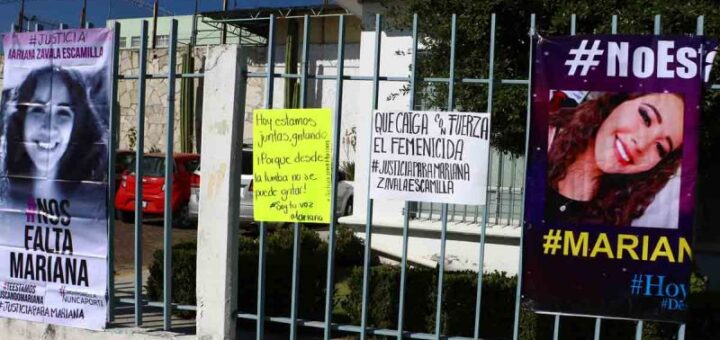 #JUSTICIA
MARIANA ZAVALA ESCAMILLA
#NOS
FALTA
MARIANA
#TEESTAMOS
BUSCANDOMARIANA
#JUSTICIA PARA MARIANA
NUNCAPORTE
Hoy estamos
juntas, gritando
¡Porque desde
la tumba no se
puede gritar!
#Soy tu voz
Mariana
QUE CAIGA CON FUERZA
EL FEMENICIDA
#JUSTICIA PARA MARIANA
ZAVALA ESCAMILLA
#NoEs
#MARIAN
#Hoy